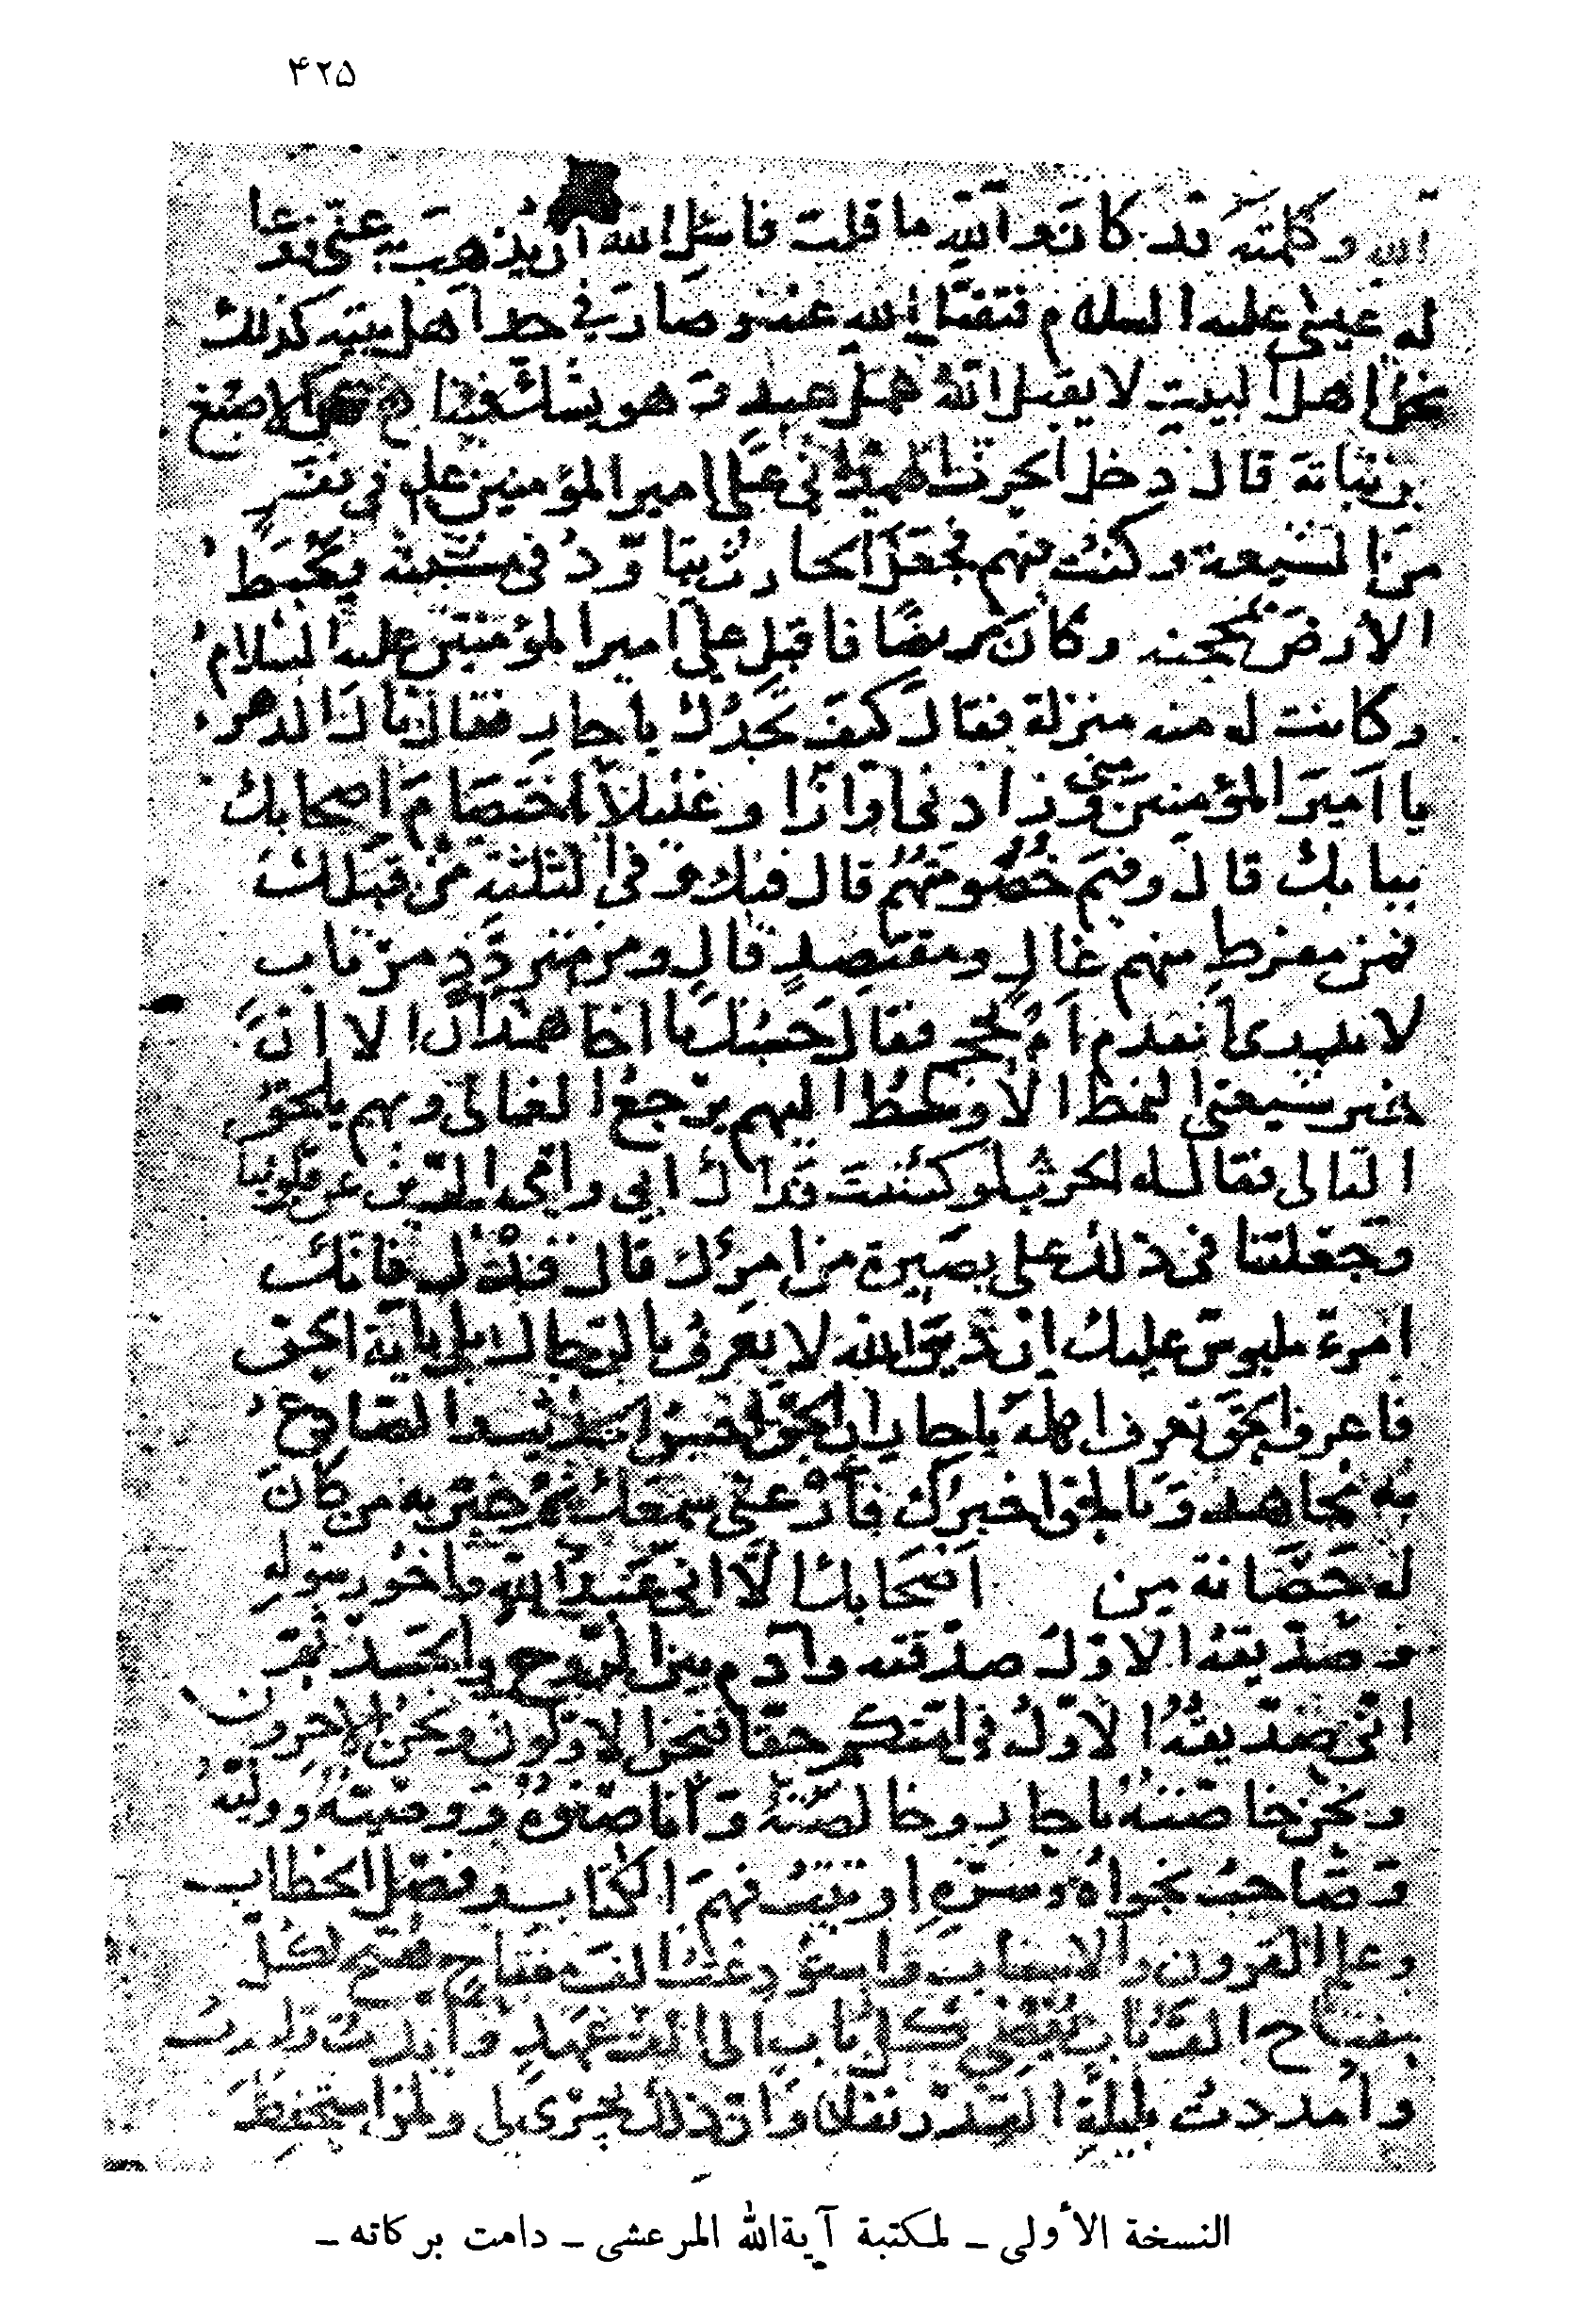 ۴۲۵
الله وكلمته قد كان والله ما قلت فاسئل الله ان يذهب عني فدعا
له عيسى عليه السلام فتفضل الله عنه وصار في حد اهل بيته كذلك
نحن اهل البيت لا يقبل الله عمل عبد وهو يشك فينا الاصبغ
بن نباتة قال دخل الحرث الهمداني على امير المؤمنين علي في نفر
من الشيعة وكنت فيهم فجعل الحارث يتاود في مشيته ويخبط
الارض بمحجنه وكان مريضا فاقبل علي امير المؤمنين عليه السلام
وكانت له منه منزلة فقال كيف تجدك يا حار فقال نال الدهر
يا امير المؤمنين مني وزادني اوارا وغليلا اختصام اصحابك
ببابك قال وفيم خصومتهم قال فيك وفي الثلثة من قبلك
فمن مفرط منهم غال ومقتصد قال ومن متردد مرتاب
لا يدري ايقدم ام يحجم فقال حسبك يا اخا همدان الا ان
خير شيعتي النمط الاوسط اليهم يرجع الغالي وبهم يلحق
التالي فقال له الحرث لو كشفت فداك ابي وامي الرين عن قلوبنا
وجعلتنا في ذلك على بصيرة من امرك قال قدك فانك
امرء ملبوس عليك ان دين الله لا يعرف بالرجال بل باية الحق
فاعرف الحق تعرف اهله يا حار ان الحق احسن الحديث والصادع
به مجاهد وبالحق اخبرك فارعني سمعك ثم خبر به من كان
له حصانة من اصحابك الا اني عبد الله واخو رسوله
وصديقه الاول صدقته وآدم بين الروح والجسد ثم
اني صديقه الاول في امتكم حقا فنحن الاولون ونحن الاخرون
ونحن خاصته يا حار وخالصته وانا صنوه ووصيه ووليه
وصاحب نجواه وسره اوتيت فهم الكتاب وفصل الخطاب
وعلم القرون والاسباب واستودعت الف مفتاح يفتح كل
مفتاح الف باب يفضي كل باب الى الف عهد وايدت
وامددت بليلة القدر نفلا وان ذلك ليجري لي ولمن استحفظ
النسخة الأولى ـ لمكتبة آيةالله المرعشى ـ دامت بركاته ـ